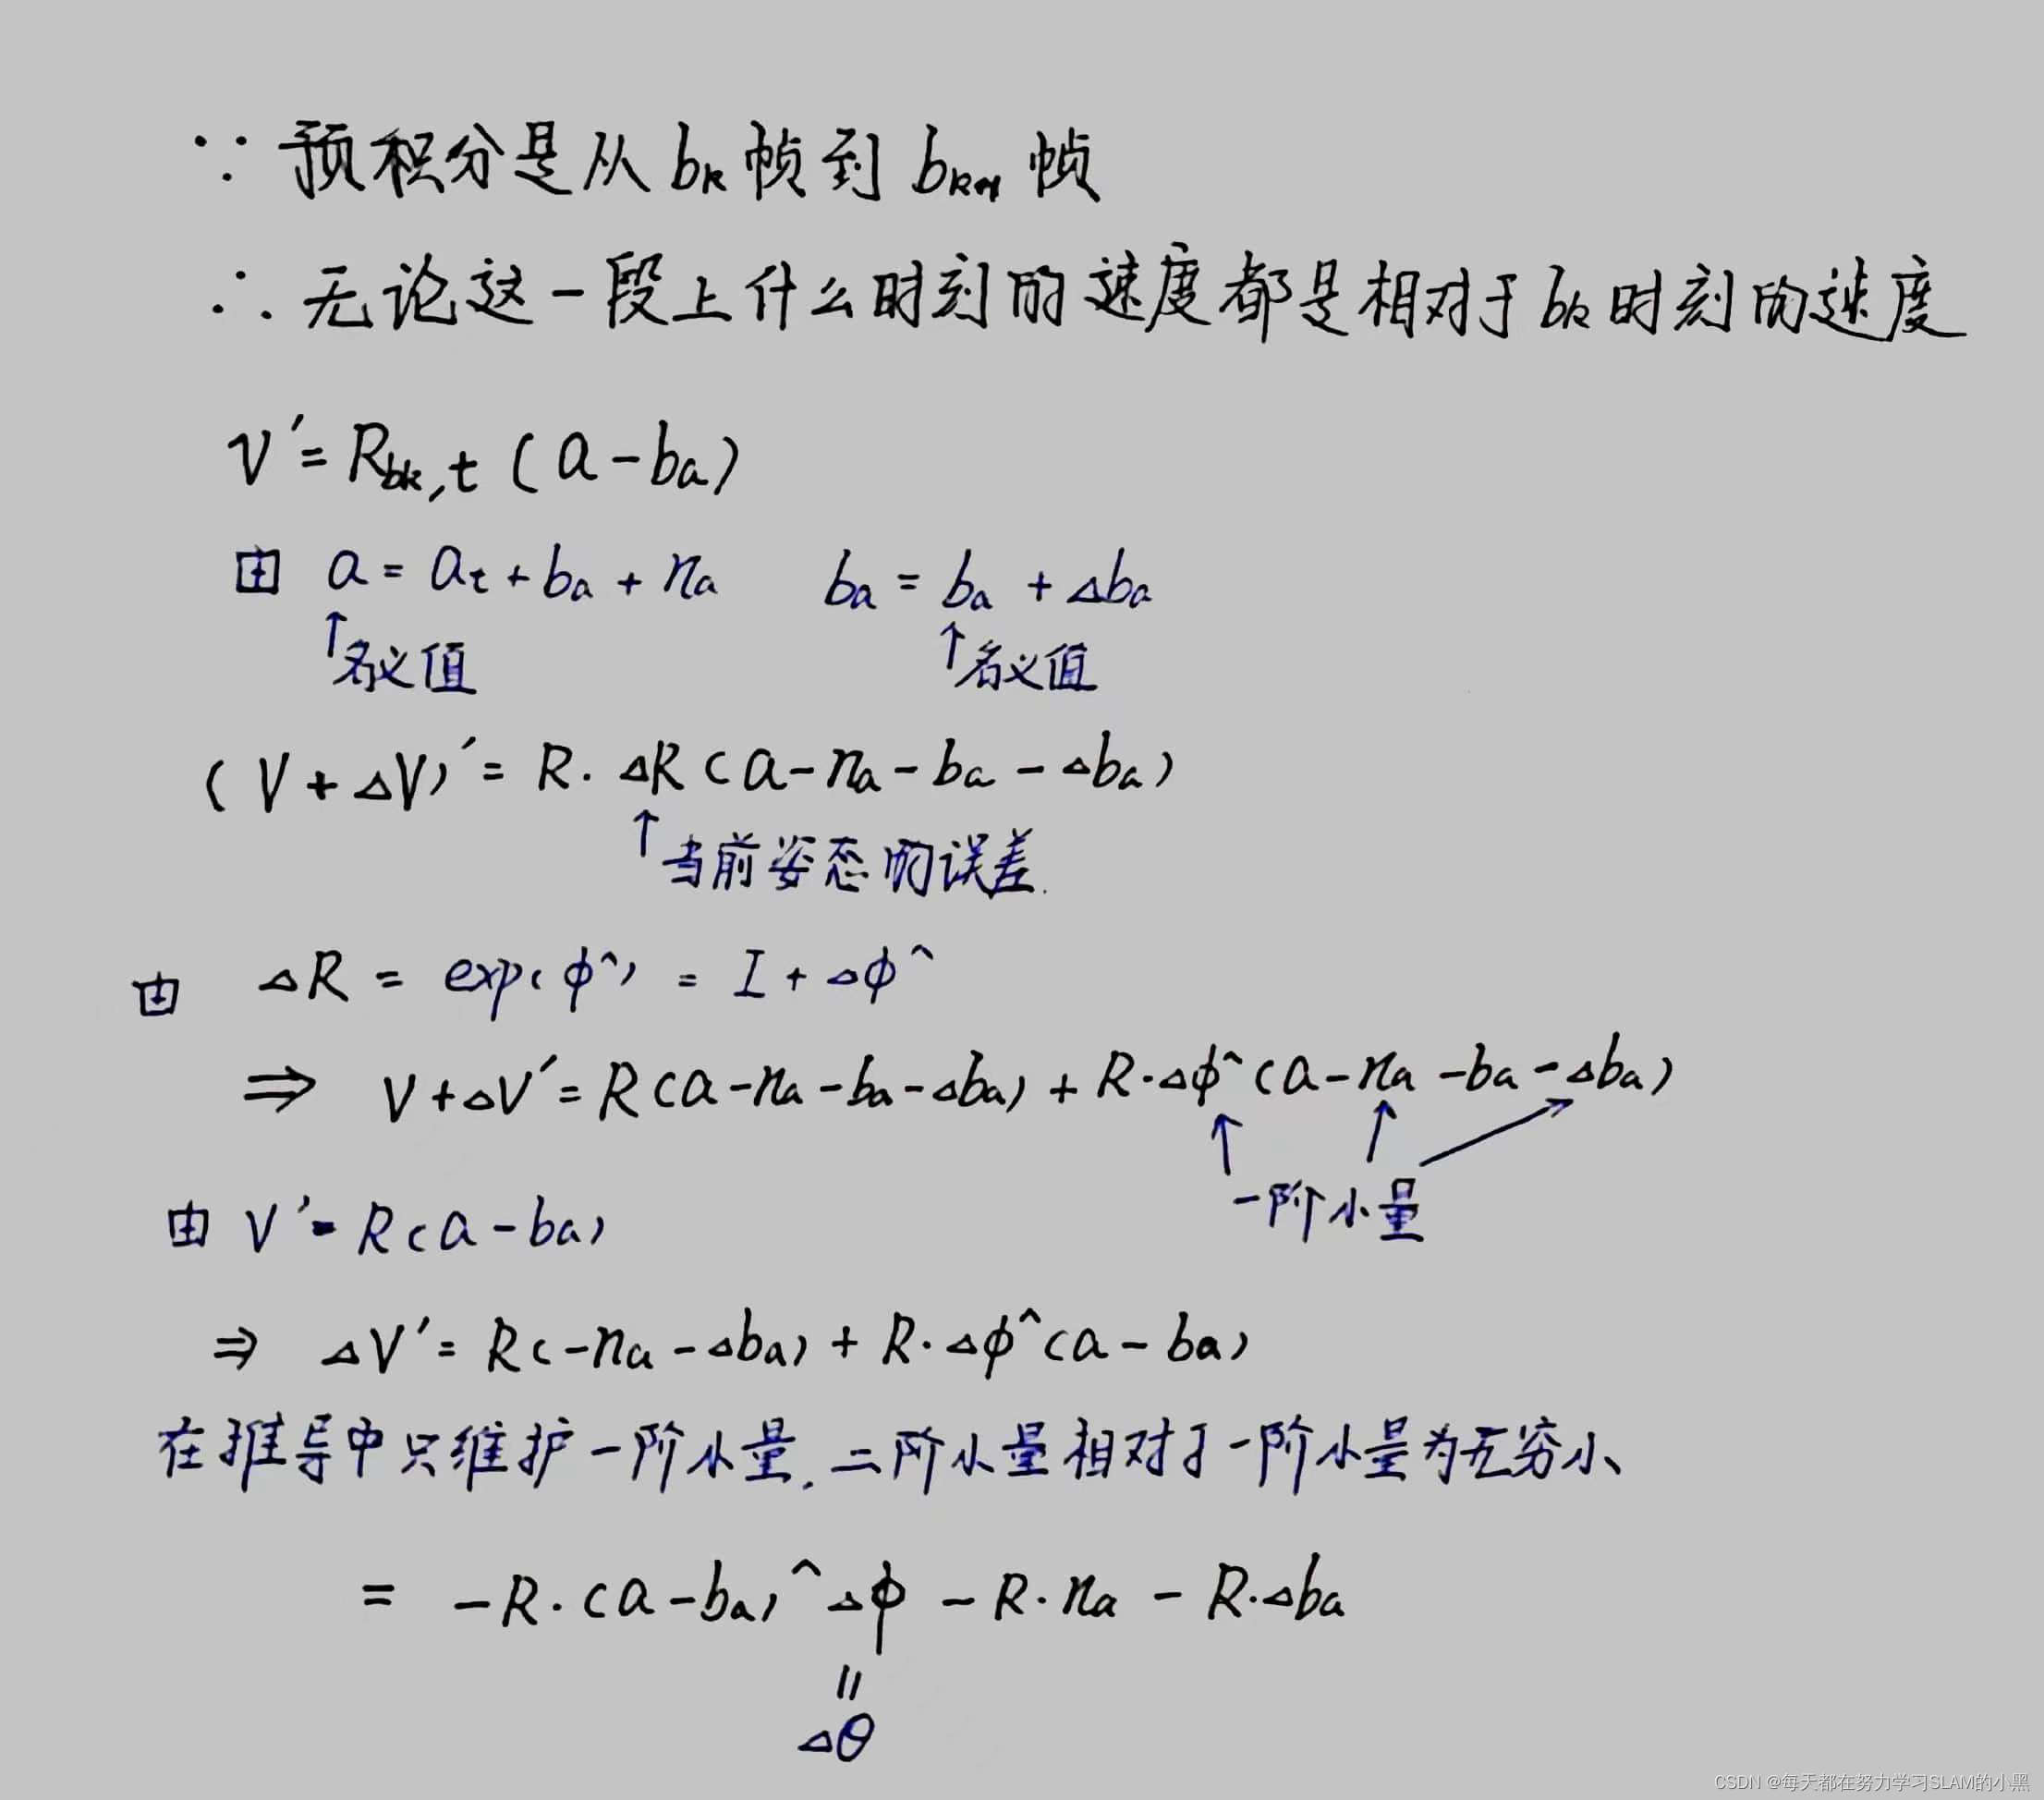 ∵ 预积分是从 bk 帧到 bk+1 帧
∴ 无论这一段上什么时刻的速度都是相对于 bk 时刻的速度
V′ = R_{bk,t} (a - ba)
由 a = at + ba + na ba = ba + Δba
↑名义值 ↑名义值
(V + ΔV)′ = R · ΔR (a - na - ba - Δba)
↑当前姿态的误差.
由 ΔR = exp(ϕ^) = I + Δϕ^
⇒ V + ΔV′ = R(a - na - ba - Δba) + R · Δϕ^ (a - na - ba - Δba)
一阶小量
由 V′ = R(a - ba)
⇒ ΔV′ = R(-na - Δba) + R · Δϕ^ (a - ba)
在推导中只维护一阶小量, 二阶小量相对于一阶小量为无穷小
= -R · (a - ba)^ Δϕ - R · na - R · Δba
=
Δθ
CSDN @每天都在努力学习SLAM的小黑